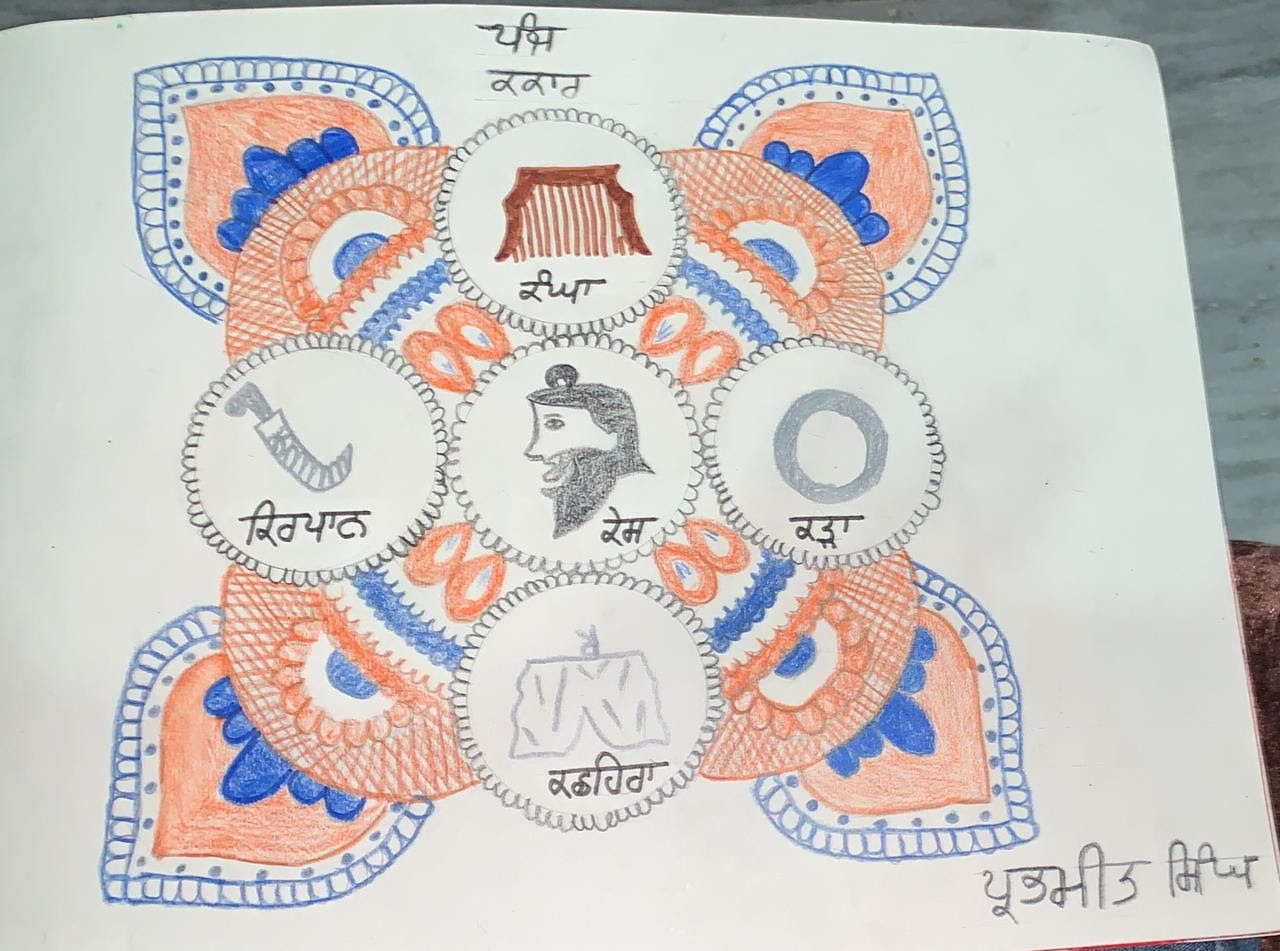 ਪੰਜ
ਕਕਾਰ
ਕੰਘਾ
ਕਿਰਪਾਨ
ਕੇਸ
ਕੜਾ
ਕਛਹਿਰਾ
ਪ੍ਰਭਮੀਤ ਸਿੰਘ